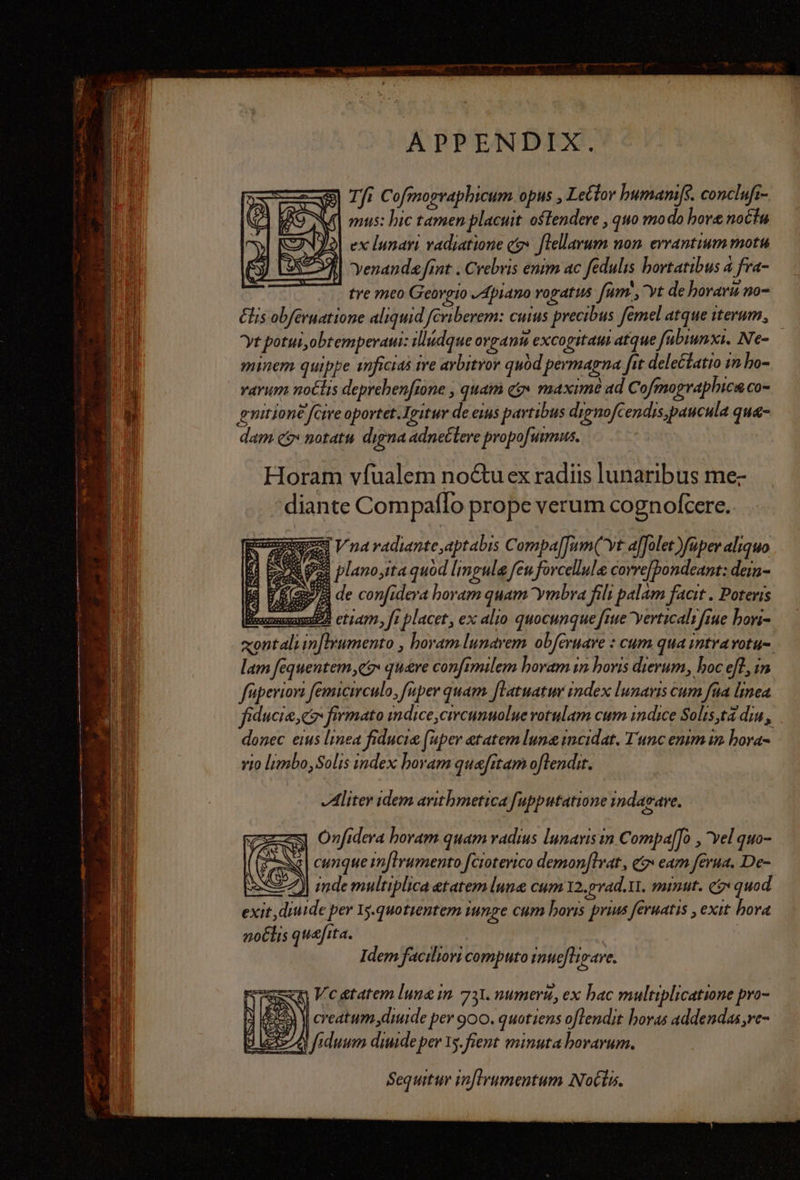 APPENDIX.
Tsi Cosmographicum opus, Lector humaniss. conclusi-
mus: hic tamen placuit ostendere, quo modo horæ noctu
ex lunari radiatione & stellarum non errantium motu
venandæ sint. Crebris enim ac sedulis hortatibus à fra-
tre meo Georgio Apiano rogatus sum, vt de horarū no-
ctis obseruatione aliquid scriberem: cuius precibus semel atque iterum,
vt potui, obtemperaui: illúdque organū excogitaui atque subiunxi. Ne-
minem quippe inficias ire arbitror quòd permagna sit delectatio in ho-
rarum noctis deprehensione, quam & maximè ad Cosmographicæ co-
gnitionē scire oportet. Igitur de eius partibus dignoscendis, paucula quæ-
dam & notatu digna adnectere proposuimus.
Horam vsualem noctu ex radiis lunaribus me-
diante Compasso prope verum cognoscere.
Vna radiante, aptabis Compassum (vt assolet) super aliquo
plano, ita quòd lingulæ seu forcellulæ correspondeant: dein-
de considera horam quam vmbra fili palam facit. Poteris
etiam, si placet, ex alio quocunque siue verticali siue hori-
zontali instrumento, horam lunarem obseruare: cum qua intra rotu-
lam sequentem, & quære consimilem horam in horis dierum, hoc est, in
superiori semicirculo, super quam statuatur index lunaris cum sua linea
fiduciæ, & firmato indice, circunuolue rotulam cum indice Solis, tā diu,
donec eius linea fiduciæ super ætatem lunæ incidat. Tunc enim in hora-
rio limbo, Solis index horam quæsitam ostendit.
Aliter idem arithmetica supputatione indagare.
Onsidera horam quam radius lunaris in Compasso, vel quo-
cunque instrumento scioterico demonstrat, & eam serua. De-
inde multiplica ætatem lunæ cum 12. grad. 11. minut. & quod
exit, diuide per 15. quotientem iunge cum horis prius seruatis, exit hora
noctis quæsita.
Idem faciliori computo inuestigare.
Vc ætatem lunæ in 731. numerū, ex hac multiplicatione pro-
creatum, diuide per 900. quotiens ostendit horas addendas, re-
siduum diuide per 15. fient minuta horarum.
Sequitur instrumentum Noctis.